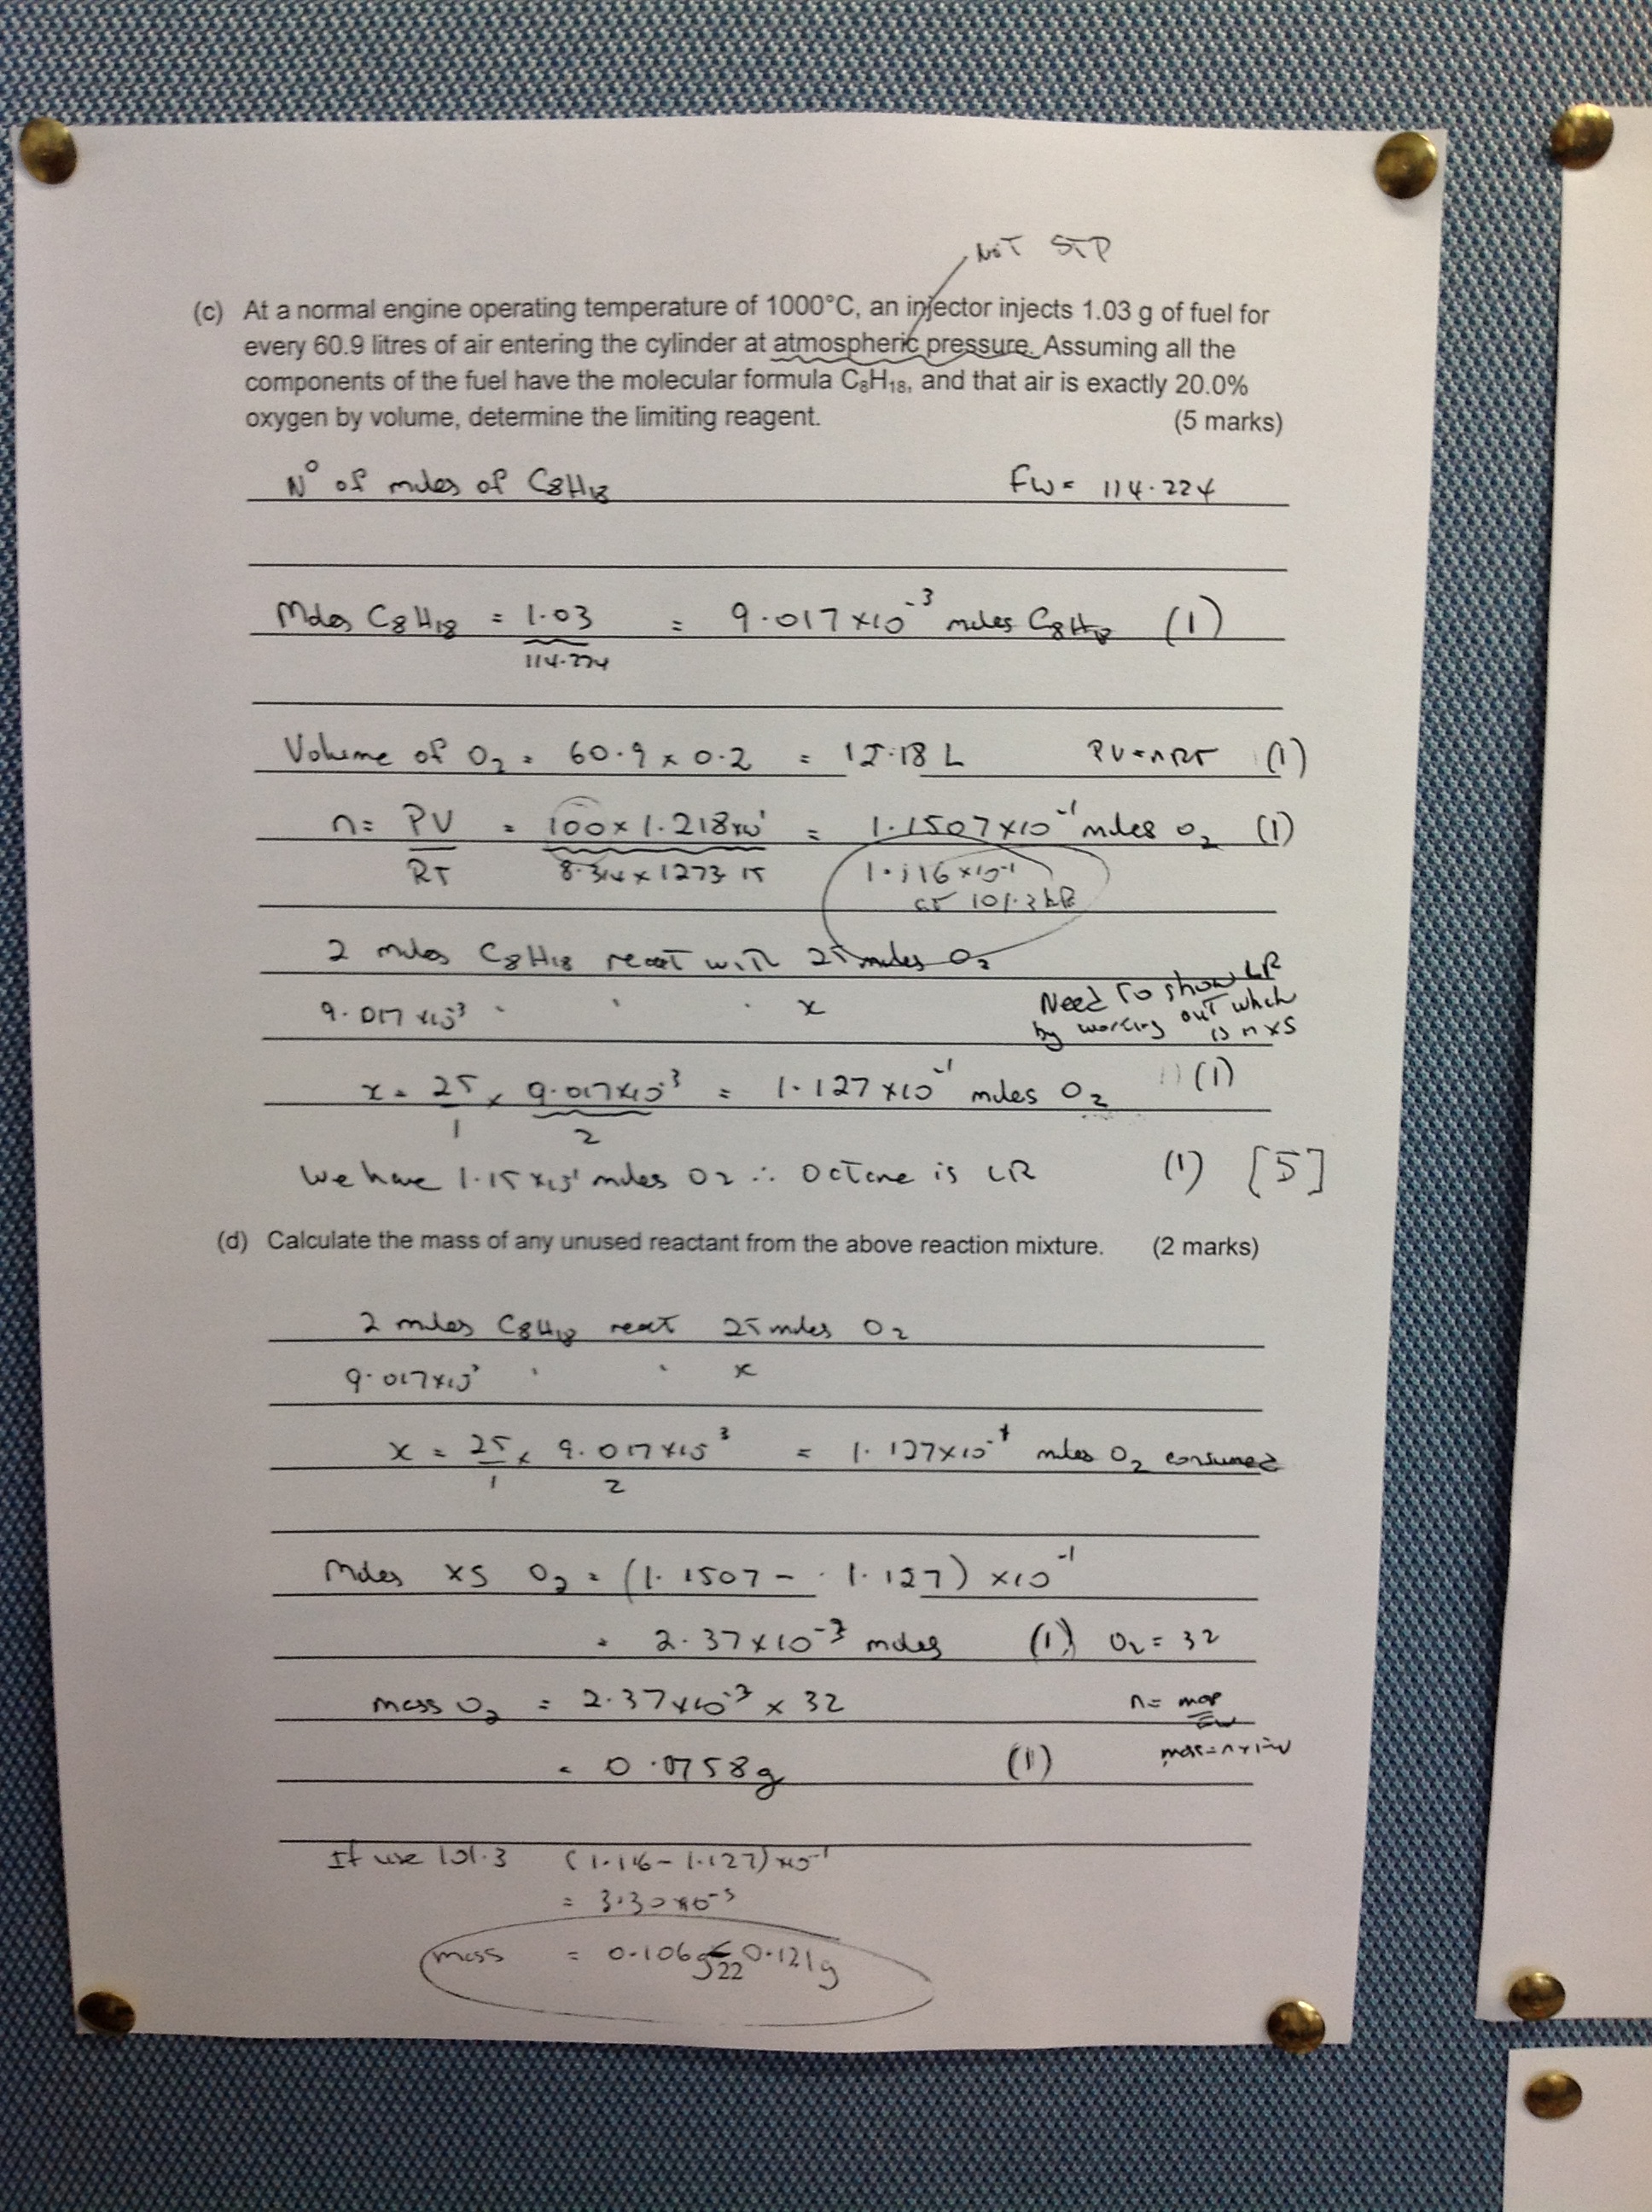 NOT STP
(c) At a normal engine operating temperature of 1000°C, an injector injects 1.03 g of fuel for
every 60.9 litres of air entering the cylinder at atmospheric pressure. Assuming all the
components of the fuel have the molecular formula C₈H₁₈, and that air is exactly 20.0%
oxygen by volume, determine the limiting reagent. (5 marks)
N° of moles of C₈H₁₈ FW = 114.224
Moles C₈H₁₈ = 1.03 = 9.017 x10⁻³ moles C₈H₁₈ (1)
114.224
Volume of O₂ = 60.9 x 0.2 = 12.18 L PV=nRT (1)
n= PV = 100 x 1.218x10¹ = 1.1507 x10⁻¹ moles O₂ (1)
RT 8.314 x 1273.15
1.116 x10⁻¹
at 101.3 kPa
2 moles C₈H₁₈ react with 25 moles O₂
Need to show LR
9.017 x10⁻³ " " " x
by working out which
is n xs
x = 25 x 9.017x10⁻³ = 1.127 x10⁻¹ moles O₂ (1)
1 2
We have 1.15 x10⁻¹ moles O₂ ∴ Octane is LR (1) [5]
(d) Calculate the mass of any unused reactant from the above reaction mixture. (2 marks)
2 moles C₈H₁₈ react 25 moles O₂
9.017x10⁻³ " " x
x = 25 x 9.017 x10⁻³ = 1.127x10⁻¹ moles O₂ consumed
1 2
Moles xs O₂ = (1.1507 - 1.127) x10⁻¹
= 2.37 x10⁻³ moles (1) O₂ = 32
mass O₂ = 2.37x10⁻³ x 32 n=
= 0.0758g (1)
If use 101.3 (1.116 - 1.127) x10⁻¹
= 3.30 x10⁻³
mass = 0.106g 0.121g